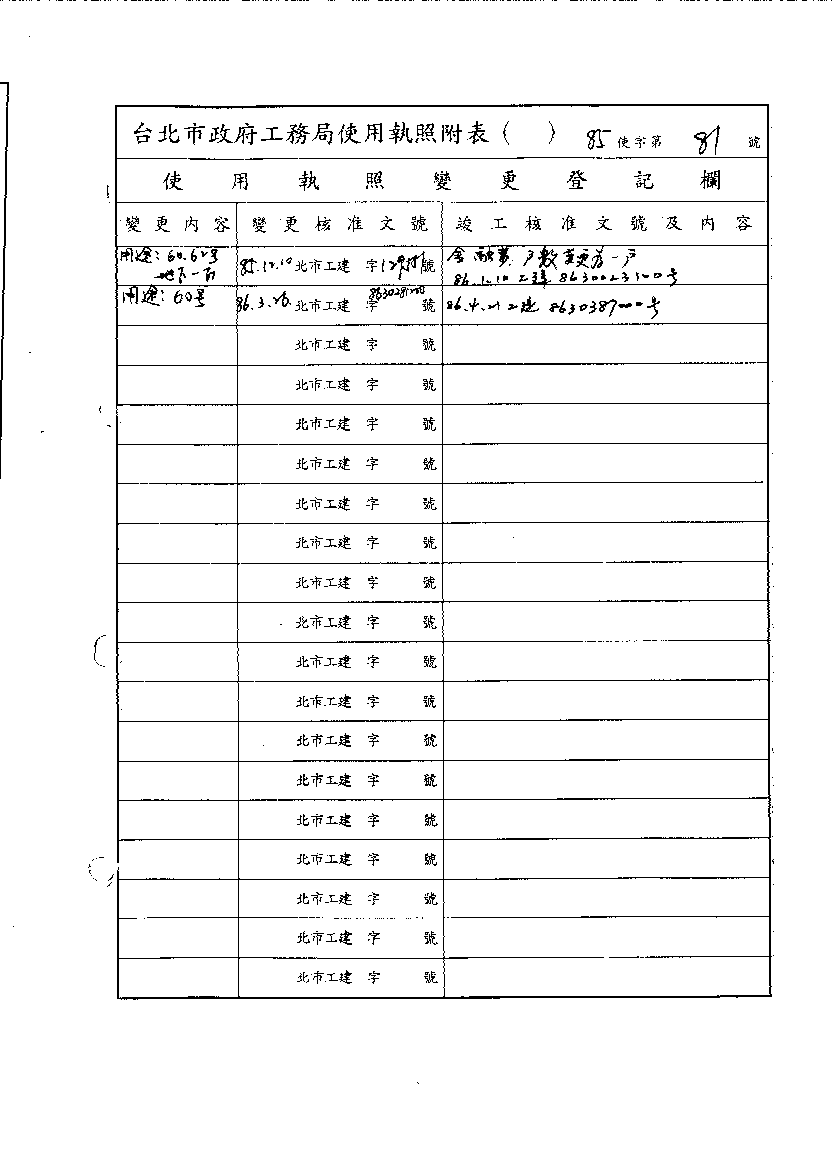 台北市政府工務局使用執照附表（　） 85 使字第 81 號
使用執照變更登記欄
變更內容 變更核准文號 竣工核准文號及內容
用途：60.62号 85.12.10 北市工建 字 號 戶數變更為一戶
地下一 86.1.10 工建 8630023100号
用途：60号 86.3.26. 北市工建 字 8630281200 號 86.4.21 工建 8630387000号
北市工建 字 號
北市工建 字 號
北市工建 字 號
北市工建 字 號
北市工建 字 號
北市工建 字 號
北市工建 字 號
北市工建 字 號
北市工建 字 號
北市工建 字 號
北市工建 字 號
北市工建 字 號
北市工建 字 號
北市工建 字 號
北市工建 字 號
北市工建 字 號
北市工建 字 號